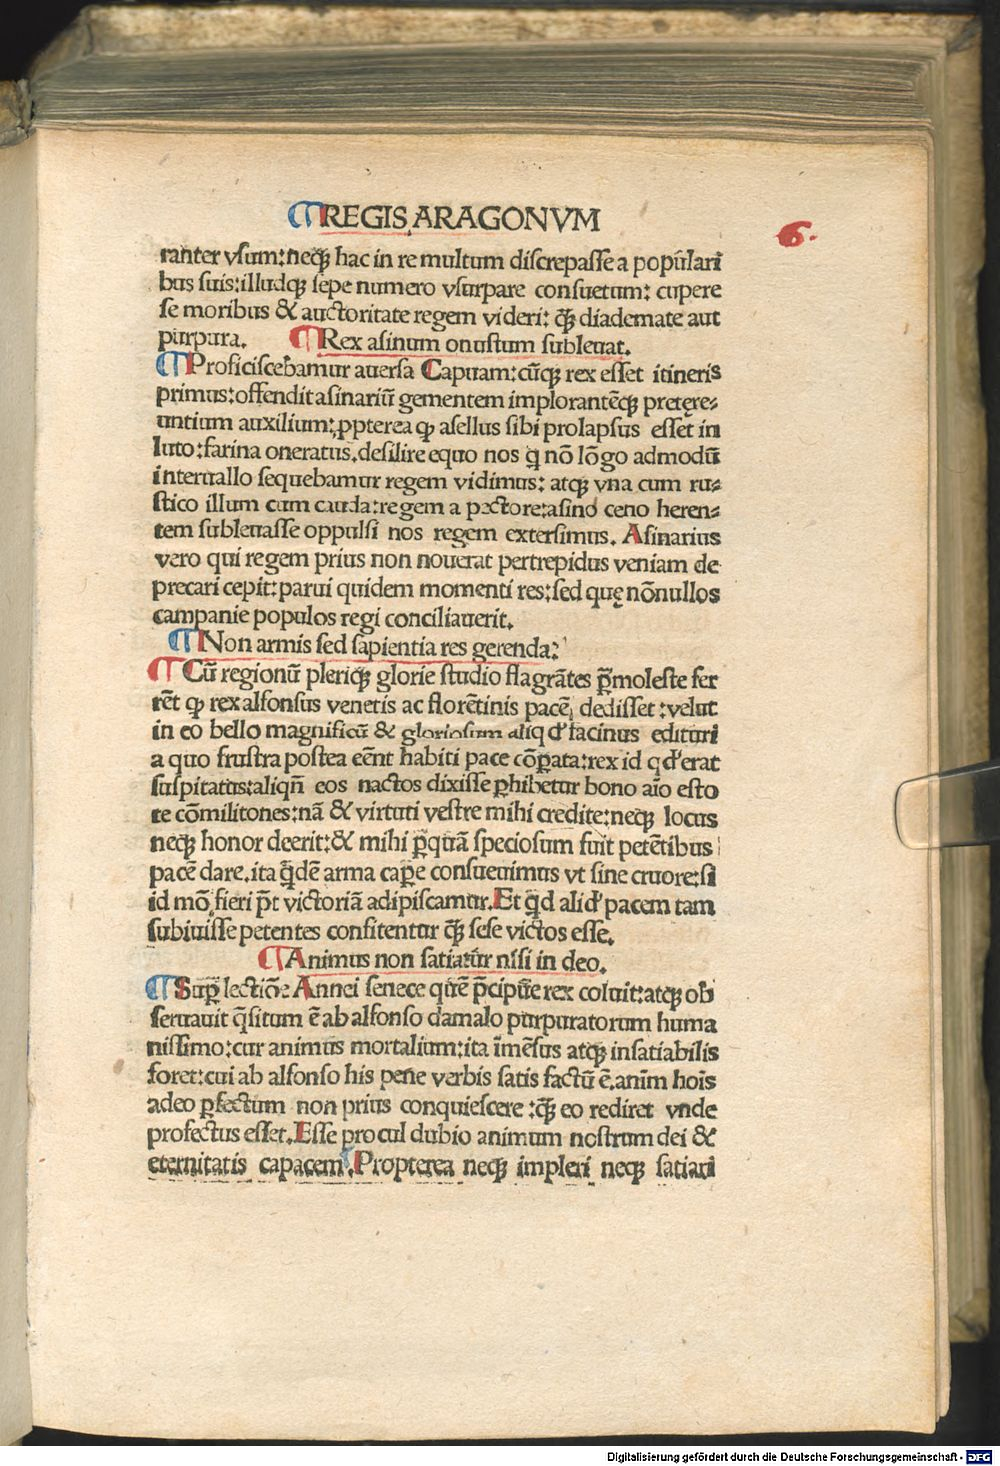 REGIS ARAGONVM
6.
ranter vsum: neqꝫ hac in re multum discrepasse a populari
bus suis: illudqꝫ sepe numero vsurpare consuetum: cupere
se moribus & auctoritate regem videri: q̄ꝫ diademate aut
purpura. ¶ Rex asinum onustum subleuat.
¶ Proficiscebamur auersa Capuam: cūqꝫ rex esset itineris
primus: offendit asinariū gementem implorantēqꝫ pretęre⸗
untium auxilium: ꝓpterea ꝙ asellus sibi prolapsus esset in
luto: farina oneratus. desilire equo nos q̄ nō lōgo admodū
interuallo sequebamur regem vidimus: atqꝫ vna cum ru⸗
stico illum cum cauda: regem a pectore: asino ceno heren⸗
tem subleuasse oppulsi nos regem extersimus. Asinarius
vero qui regem prius non nouerat pertrepidus veniam de
precari cepit: parui quidem momenti res: sed quę nōnullos
campanie populos regi conciliauerit.
¶ Non armis sed sapientia res gerenda:
¶ Cū regionū pleriqꝫ glorie studio flagrātes p̄moleste fer
rēt ꝙ rex alfonsus venetis ac florētinis pacē dedisset: velut
in eo bello magnificū & gloriosum aliqd' facinus edituri
a quo frustra postea eēnt habiti pace cōꝑata: rex id qd' erat
suspitatus: aliqn̄ eos nactos dixisse ꝑhibetur bono aīo esto
te cōmilitones: nā & virtuti vestre mihi credite: neqꝫ locus
neqꝫ honor deerit: & mihi p̄quā speciosum fuit petētibus
pacē dare. ita q̄dē arma caꝑe consueuimus vt sine cruore: si
id mō fieri p̄t victoriā adipiscamur. Et q̄d alid' pacem tam
subiuisse petentes confitentur q̄ꝫ sese victos esse.
¶ Animus non satiatur nisi in deo.
¶ Suꝑ lectiōe Annei senece quē p̄cipue rex coluit: atqꝫ ob
seruauit q̄situm ē ab alfonso damalo purpuratorum huma
nissimo: cur animus mortalium: ita īmēsus atqꝫ insatiabilis
foret: cui ab alfonso his pene verbis satis factū ē. anim hoīs
adeo ꝑfectum non prius conquiescere: q̄ꝫ eo rediret vnde
profectus esset. Esse procul dubio animum nostrum dei &
eternitatis capacem. Propterea neqꝫ impleri neqꝫ satiari
Digitalisierung gefördert durch die Deutsche Forschungsgemeinschaft - DFG